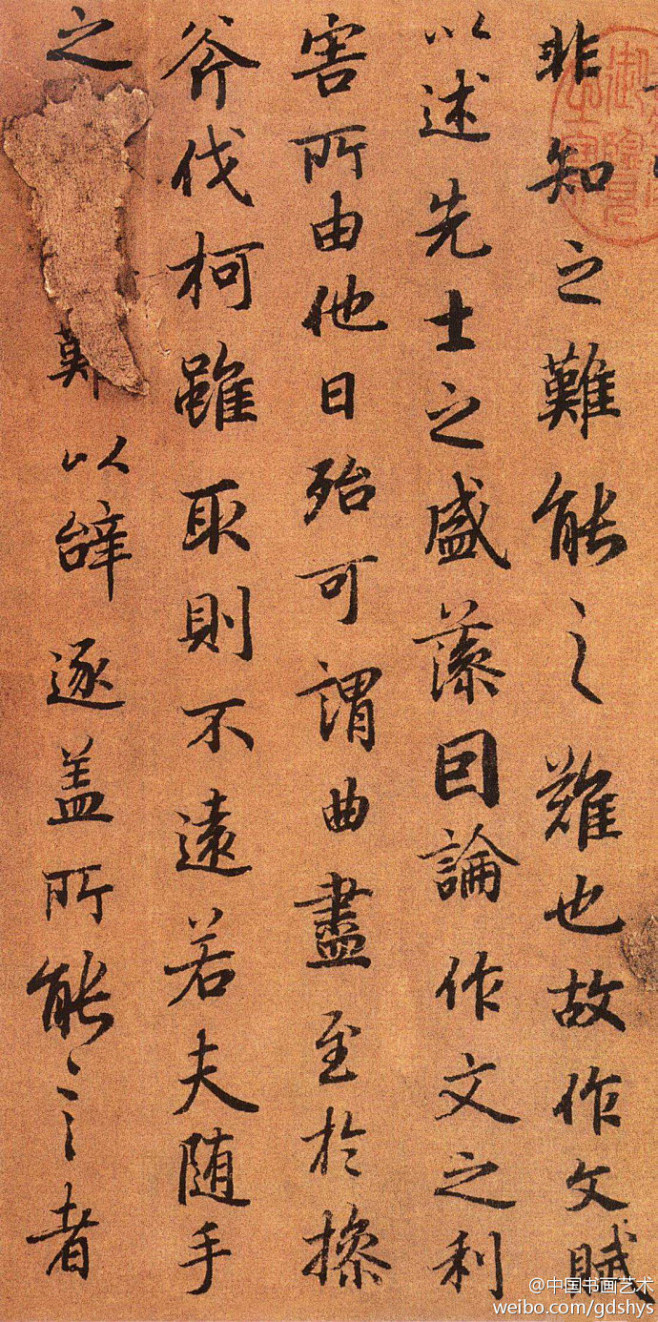 非知之難能之難也故作文賦
以述先士之盛藻囙論作文之利
害所由他日殆可謂曲盡至於操
斧伐柯雖取則不遠若夫随手
之難以辭逐盖所能之者
@中国书画艺术
weibo.com/gdshys